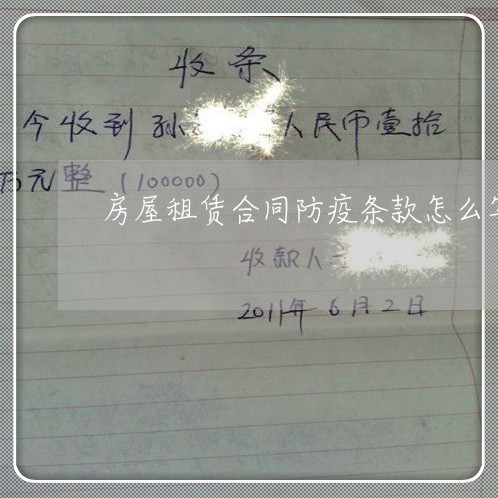 收条
今收到孙 人民币壹拾
万元整（100000）
房屋租赁合同防疫条款怎么
收款人
2011年6月2日